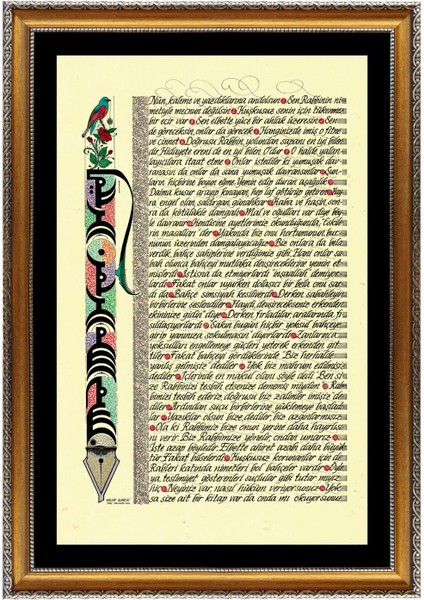 Nûn, kaleme ve yazdıklarına andolsun Sen Rabbinin ni
metiyle mecnun değilsin Kuşkusuz senin için tükenmez
bir ecir var Sen elbette yüce bir ahlak üzeresin Sen
de göreceksin, onlar da görecek Hanginizde imiş o fitne
ve cinnet Doğrusu Rabbin, yolundan sapanı en iyi bilen
dir Hidayete ereni de en iyi bilen O'dur O halde, yalan
layıcılara itaat etme Onlar istediler ki yumuşak dav
ranasın da onlar da sana yumuşak davransınlar Şun
ların hiçbirine boyun eğme Yemin edip duran aşağılık
Daima kusur arayıp kınayan, hep laf götürüp getiren Hay
ra engel olan, saldırgan, günahkar Kaba ve haşin, son
ra da kötülükle damgalı Mal ve oğulları var diye böy
le davranır Kendisine ayetlerimiz okunduğunda, "Eskile
rin masalları" der Yakında biz onu hortumunun, bur
nunun üzerinden damgalayacağız Biz onlara da bela
verdik, bahçe sahiplerine verdiğimiz gibi. Hani onlar sa
bah olunca, bahçeyi mutlaka devşireceklerine yemin et
mişlerdi İstisna da etmiyorlardı "inşaallah" demiyor
lardı Fakat onlar uyurken dolaşıcı bir bela onu sar
dı da Bahçe simsiyah kesiliverdi Derken, sabahleyin
birbirlerine seslendiler Haydi, devşirecekseniz erkenden
ekininize gidin" diye Derken fırladılar, aralarında fı
sıldaşıyorlardı Sakın bugün hiçbir yoksul bahçeye
girip yanınıza sokulmasın" diyorlardı Zanlarınca
yoksulları engellemeye güçleri yeterek erkenden git
tiler Fakat bahçeyi gördüklerinde "Biz herhalde
yanlış gelmişiz" dediler Yok, biz mahrum edilmişiz"
dediler İçlerinde en makul olanı şöyle dedi "Ben si
ze Rabbinizi tesbih etsenize demedim miydim" Rab
bimizi tesbih ederiz, doğrusu biz zalimler imişiz" de
diler Ardından suçu birbirlerine yüklemeye başladı
lar Yazıklar olsun bize, dediler, biz azgınlarmışız
Ola ki Rabbimiz bize onun yerine daha hayırlısı
nı verir. Biz Rabbimize yönelip ondan umarız
İşte azap böyledir. Elbette ahiret azabı daha büyük
tür. Fakat bilselerdi Kuşkusuz korunanlar için de
Rableri katında nimetleri bol bahçeler vardır Öyle
ya, teslimiyet gösterenleri suçlular gibi tutar mıyız
hiç Neyiniz var, nasıl hüküm veriyorsunuz Yok
sa, size ait bir kitap var da onda mı okuyorsunuz